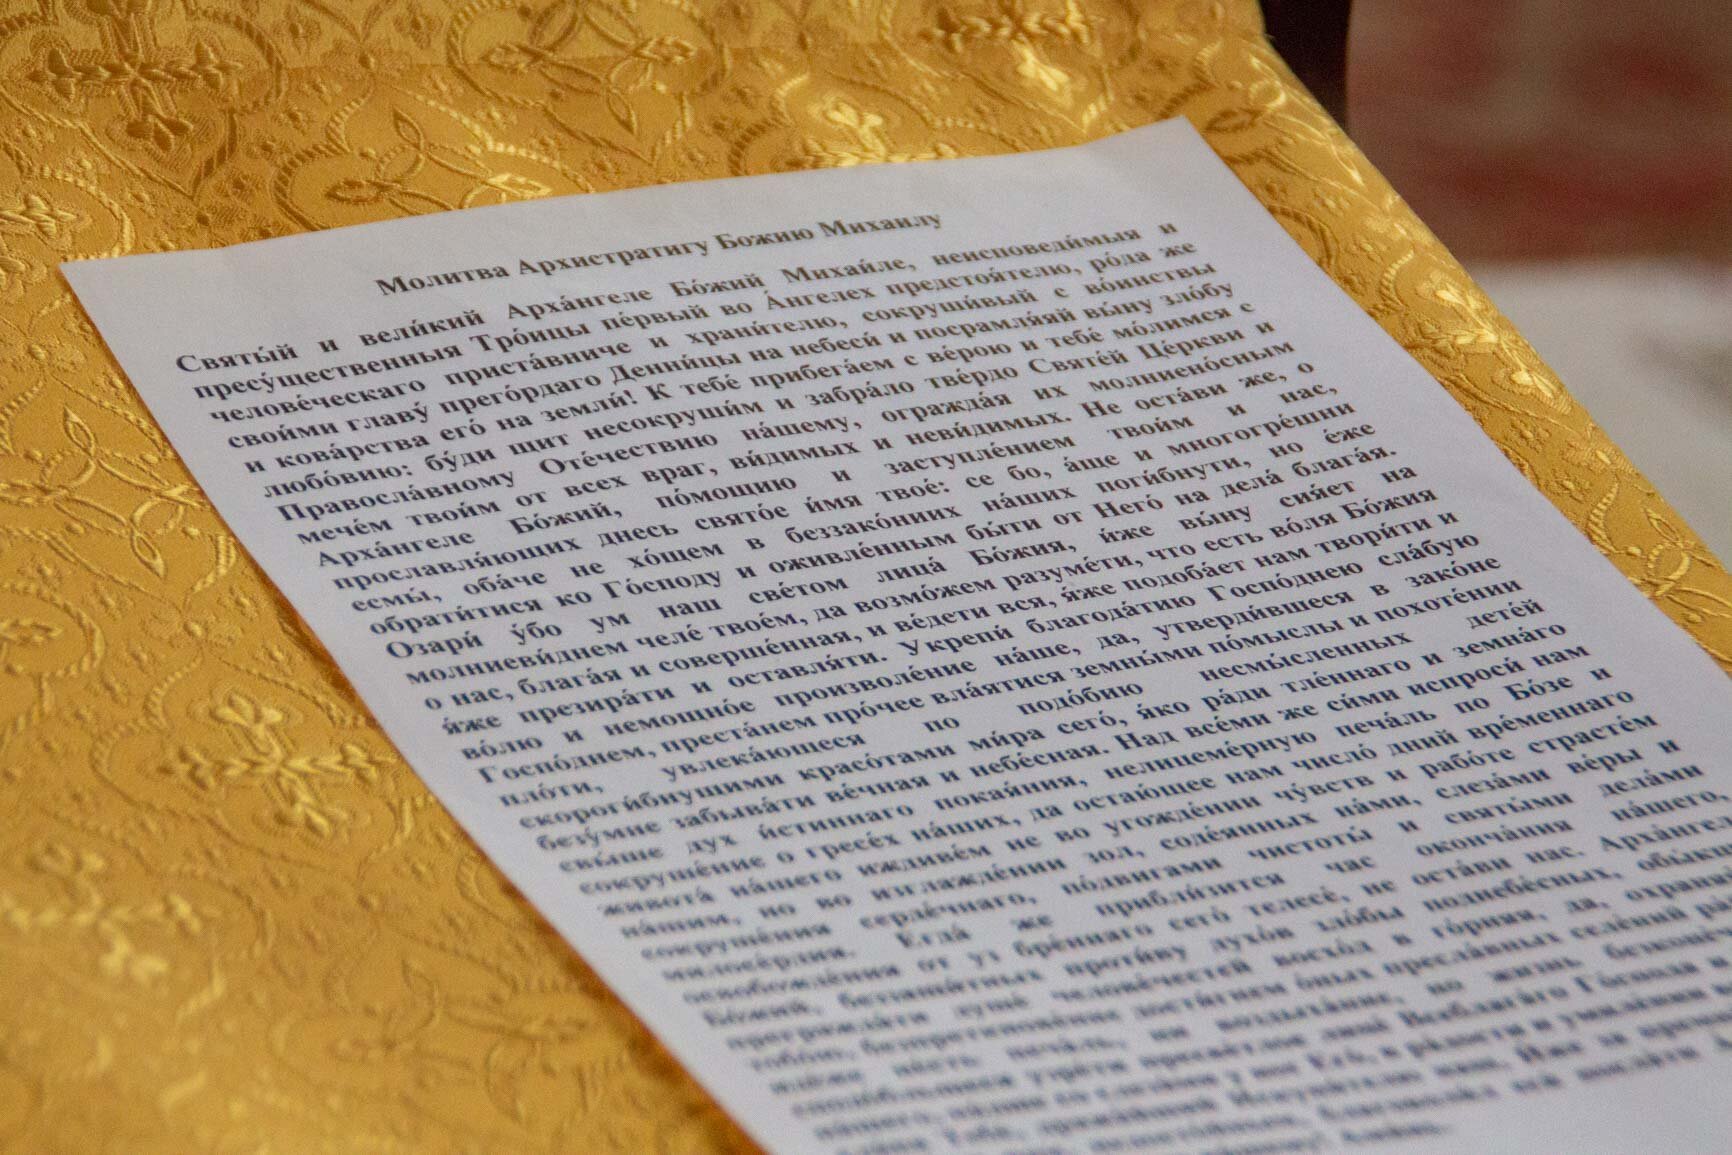 Молитва Архистратигу Божию Михаилу
Святы́й и вели́кий Арха́нгеле Бо́жий Михаи́ле, неисповеди́мыя и
пресу́щественныя Тро́ицы пе́рвый во А́нгелех предстоя́телю, ро́да же
челове́ческаго приста́вниче и храни́телю, сокруши́вый с во́инствы
свои́ми главу́ прего́рдаго Денни́цы на небеси́ и посрамля́яй вы́ну зло́бу
и кова́рства его́ на земли́! К тебе́ прибега́ем с ве́рою и тебе́ мо́лимся с
любо́вию: бу́ди щит несокруши́м и забра́ло тве́рдо Святе́й Це́ркви и
Правосла́вному Оте́чествию на́шему, огражда́я их молниено́сным
мече́м твои́м от всех враг, ви́димых и неви́димых. Не оста́ви же, о
Арха́нгеле Бо́жий, по́мощию и заступле́нием твои́м и нас,
прославля́ющих днесь свято́е и́мя твое́: се бо, а́ще и многогре́шни
есмы́, оба́че не хо́щем в беззако́ниих на́ших поги́бнути, но е́же
обрати́тися ко Го́споду и оживле́нным бы́ти от Него́ на дела́ блага́я.
Озари́ у́бо ум наш све́том лица́ Бо́жия, и́же вы́ну сия́ет на
молниеви́днем челе́ твое́м, да возмо́жем разуме́ти, что есть во́ля Бо́жия
о нас, блага́я и соверше́нная, и ве́дети вся, я́же подоба́ет нам твори́ти и
я́же презира́ти и оставля́ти. Укрепи́ благода́тию Госпо́днею сла́бую
во́лю и немощно́е произволе́ние на́ше, да, утверди́вшеся в зако́не
Госпо́днем, преста́нем про́чее влая́тися земны́ми по́мыслы и похоте́нии
пло́ти, увлека́ющеся по подо́бию несмы́сленных дете́й
скороги́бнущими красо́тами ми́ра сего́, я́ко ра́ди тле́ннаго и земна́го
безу́мне забыва́ти ве́чная и небе́сная. Над все́ми же си́ми испроси́ нам
свы́ше дух и́стиннаго покая́ния, нелицеме́рную печа́ль по Бо́зе и
сокруше́ние о гресе́х на́ших, да оста́ющее нам число́ дний вре́меннаго
живота́ на́шего иждиве́м не во угожде́нии чу́вств и рабо́те страсте́м
на́шим, но во изглажде́нии зол, соде́янных на́ми, слеза́ми ве́ры и
сокруше́ния серде́чнаго, по́двигами чистоты́ и святы́ми дела́ми
милосе́рдия. Егда́ же прибли́зится час оконча́ния на́шего,
освобожде́ния от уз бре́ннаго сего́ телесе́, не оста́ви нас. Арха́нгеле
Бо́жий, беззащи́тных проти́ву духо́в зло́бы поднебе́сных,
прегражда́ти душе́ челове́честей восхо́д в го́рняя, да,